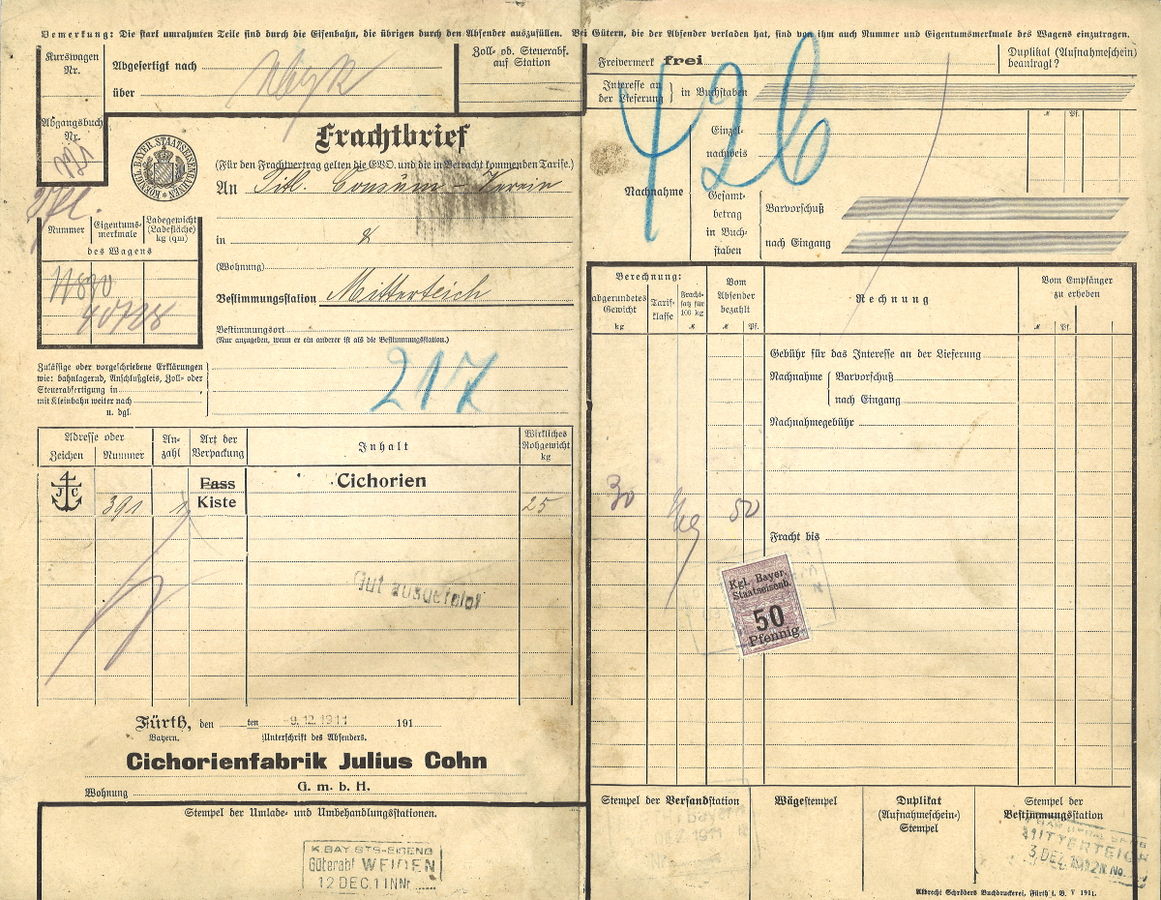 Bemerkung: Die stark umrahmten Teile sind durch die Eisenbahn, die übrigen durch den Absender auszufüllen. Bei Gütern, die der Absender verladen hat, sind von ihm auch Nummer und Eigentumsmerkmale des Wagens einzutragen.
Kurswagen Nr.
Abgefertigt nach
über
Zoll- ob. Steuerabf. auf Station
Freivermerk frei
Duplikat (Aufnahmeschein) beantragt?
Interesse an der Lieferung } in Buchstaben
Abgangsbuch Nr.
KOENIGL. BAYER. STAATSEISENBAHNEN
Frachtbrief
(Für den Frachtvertrag gelten die EVO. und die in Betracht kommenden Tarife.)
An Titl. Consum-Verein
in
(Wohnung)
Bestimmungsstation Mitterteich
Bestimmungsort
(Nur anzugeben, wenn er ein anderer ist als die Bestimmungsstation.)
Nummer
Eigentums-merkmale
Ladegewicht (Ladefläche) kg (qm)
des Wagens
11890
40788
426
M Pf.
Nachnahme
Einzel-nachweis
Gesamt-betrag in Buch-staben
Barvorschuß
nach Eingang
Zulässige oder vorgeschriebene Erklärungen
wie: bahnlagernd, Anschlußgleis, Zoll- oder
Steuerabfertigung in
mit Kleinbahn weiter nach
u. dgl.
217
Adresse oder
Zeichen
Nummer
An-zahl
Art der Verpackung
Inhalt
Wirkliches Rohgewicht kg
J C
391
1
Fass
Kiste
Cichorien
25
Gut ausgefolgt
Fürth, den ten -9.12.1911 191
Bayern.
Unterschrift des Absenders.
Cichorienfabrik Julius Cohn
G. m. b. H.
Wohnung
Stempel der Umlade- und Umbehandlungsstationen.
K.BAY.STS-EISENB
Güterabf WEIDEN
12 DEC.11 N Nr.
Berechnung:
abgerundetes Gewicht kg
Tarif-klasse
Fracht-satz für 100 kg M
Vom Absender bezahlt
M Pf.
Rechnung
Vom Empfänger zu erheben
M Pf.
Gebühr für das Interesse an der Lieferung
Nachnahme { Barvorschuß
nach Eingang
Nachnahmegebühr
30
50
Fracht bis
Kgl. Bayer.
Staatseisenb.
50
Pfennig
Stempel der Versandstation
Wägestempel
Duplikat
(Aufnahmeschein-)
Stempel
Stempel der
Bestimmungsstation
MITTERTEICH
Albrecht Schröders Buchdruckerei, Fürth i. B. V 1911.